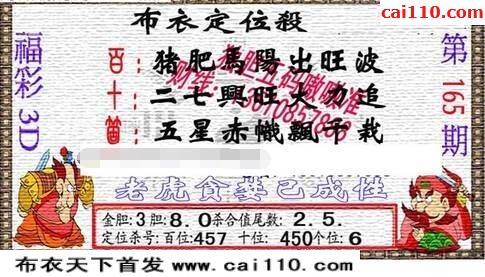 cai110.com
布衣定位殺
福彩3D
第165期
百：猪肥馬陽出旺波
十：二七興旺大力追
箇：五星赤幟飄千栽
老虎貪婪已成性
金胆:3胆:8.0杀合值尾数:2.5.
定位杀号:百位:457 十位:450个位:6
布衣天下首发 www.cai110.com